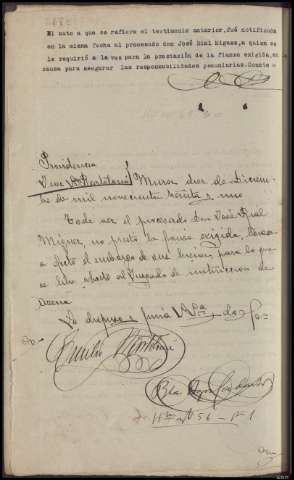 El auto a que se refiere el testimonio anterior, fué notificado
en la misma fecha al procesado don José Rial Miguez, a quien se
le requirió a la vez para la prestación de la fianza exigida, en
causa para asegurar las responsabilidades pecuniarias. Conste =
Providencia
Juez Sr. Muros diez de Diciem-
bre de mil novecientos treinta y uno
Toda vez el procesado Don José Rial
Miguez, no prestó la fianza exigida, llévese
a efecto el embargo de sus bienes, para lo que
se libre al Juzgado de instrucción de
Lo dispuso y firma S Sª doy fe=